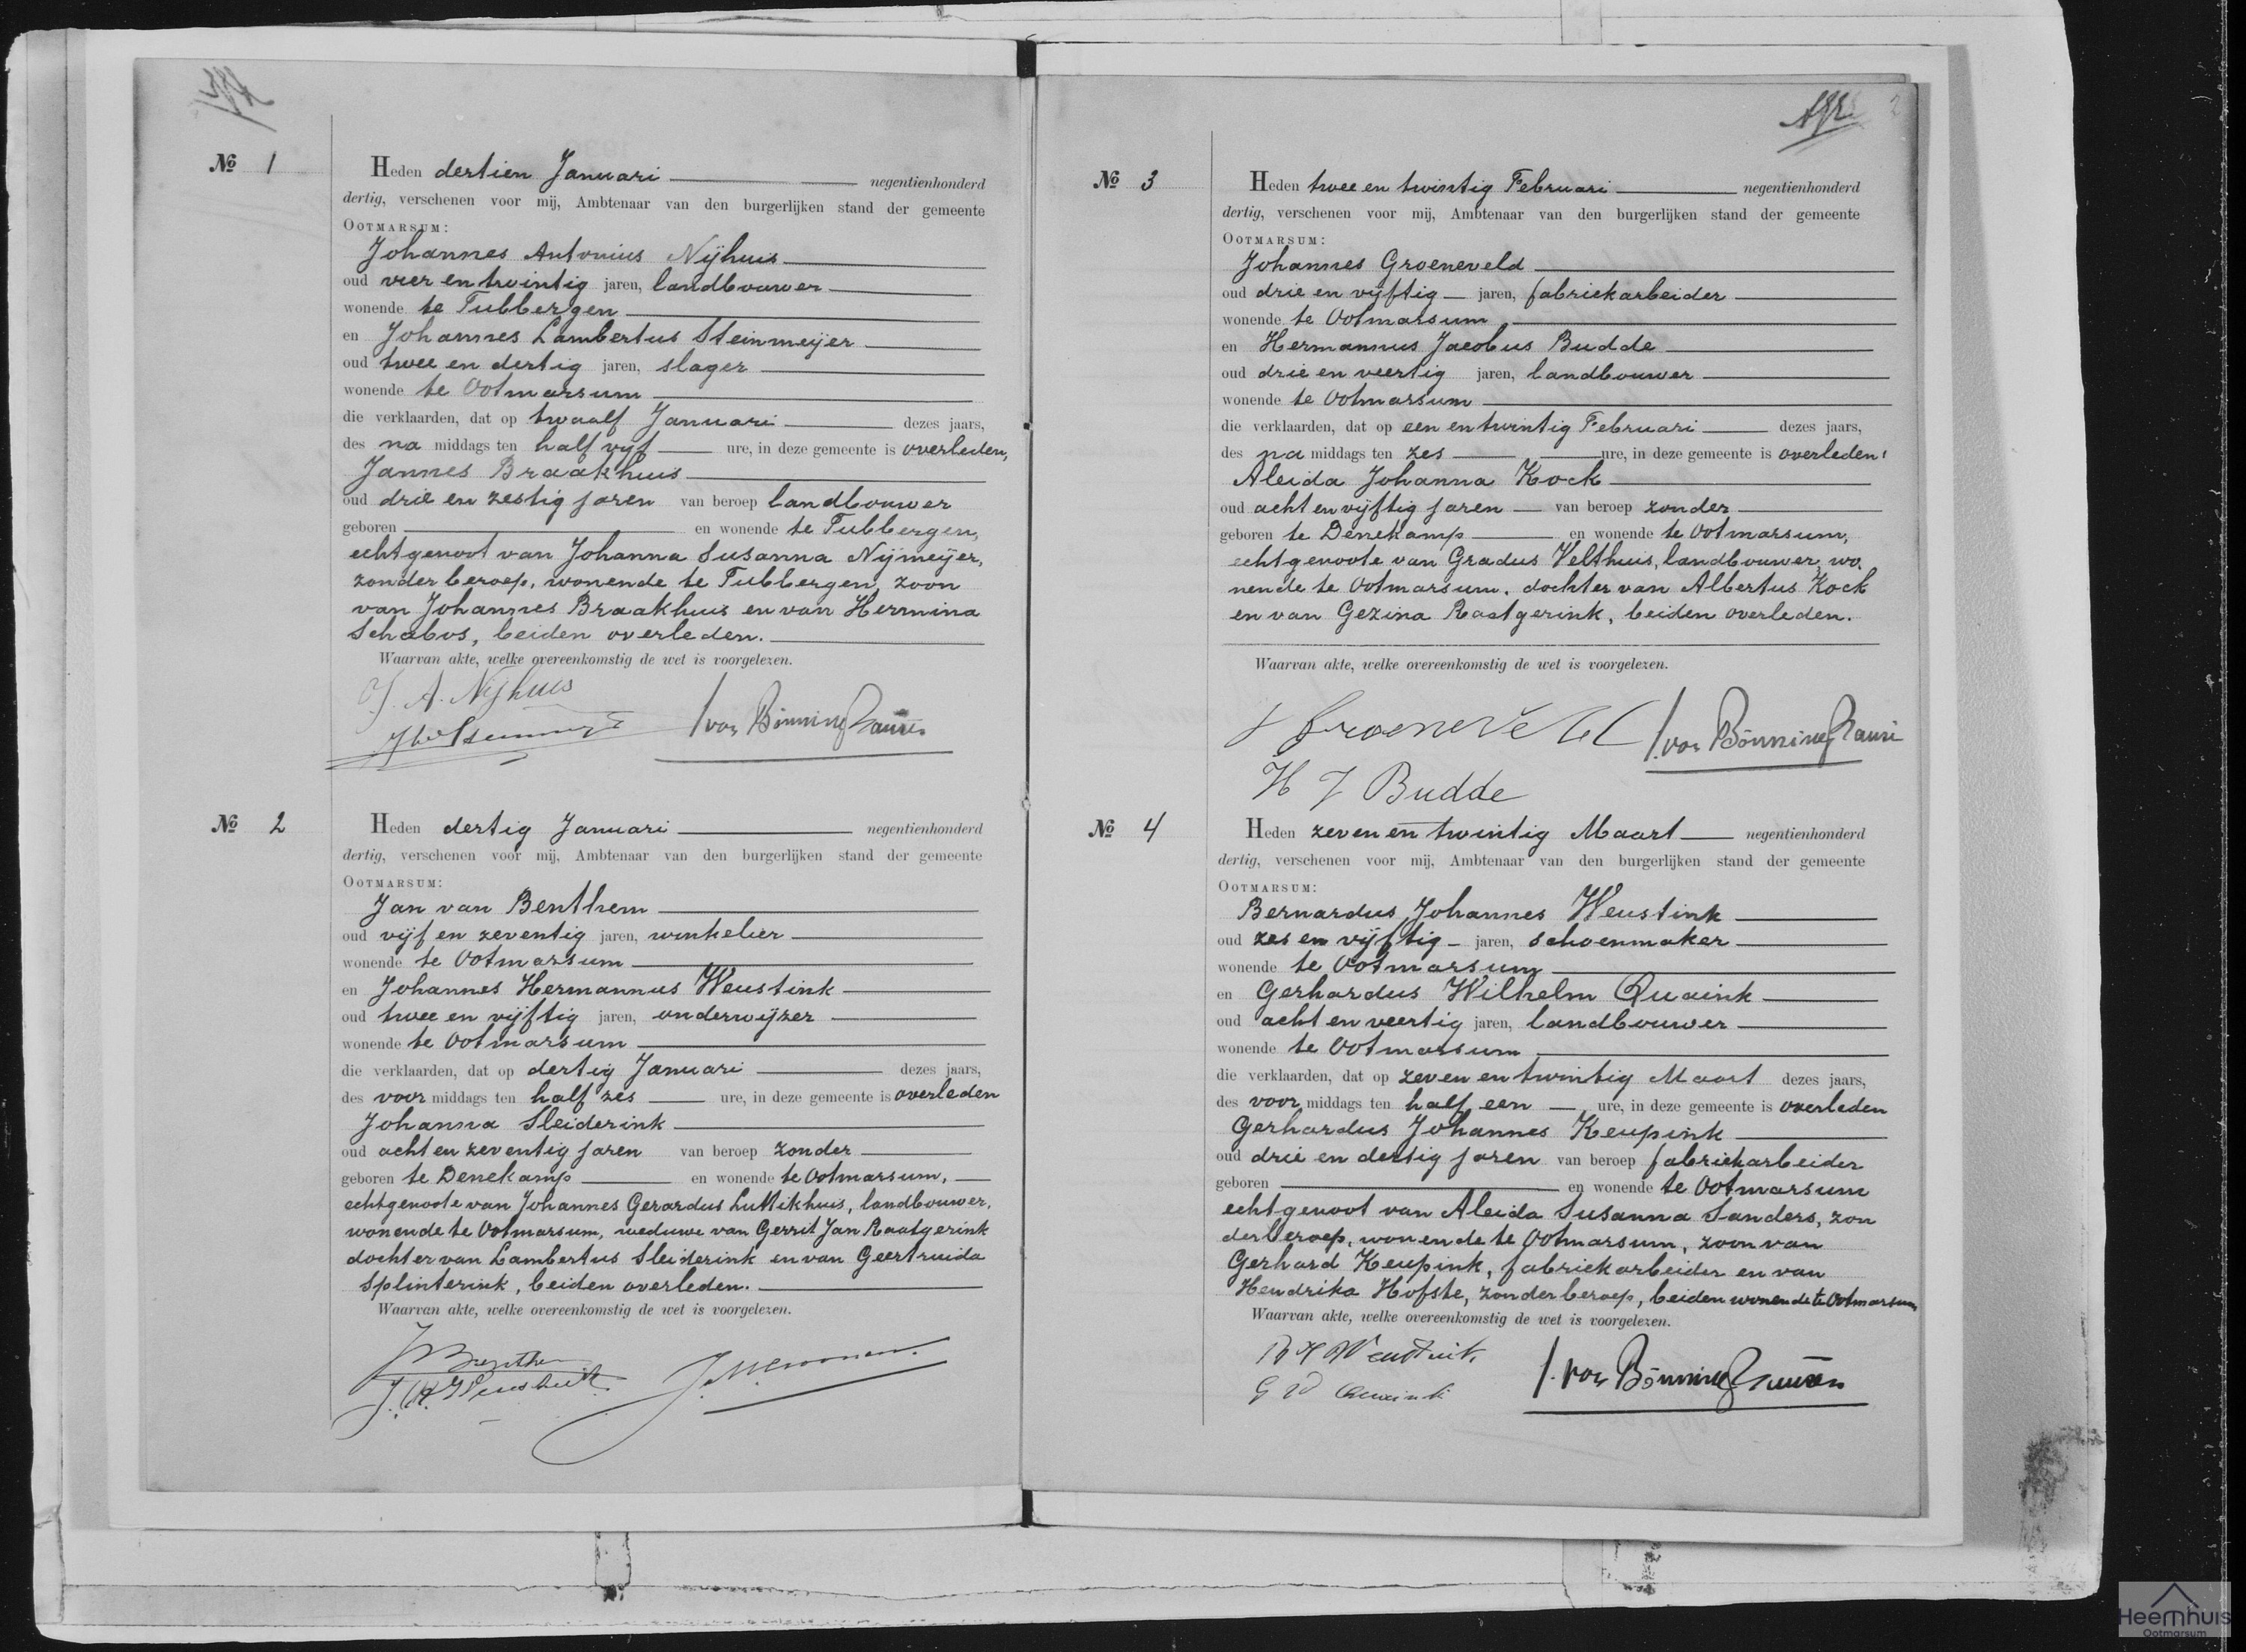 No 1
Heden dertien Januari negentienhonderd
dertig, verschenen voor mij, Ambtenaar van den burgerlijken stand der gemeente
OOTMARSUM:
Johannes Antonius Nijhuis
oud vier en twintig jaren, landbouwer
wonende te Tubbergen
en Johannes Lambertus Steinmeijer
oud twee en dertig jaren, slager
wonende te Ootmarsum
die verklaarden, dat op twaalf Januari dezes jaars,
des na middags ten half vijf ure, in deze gemeente is overleden,
Jannes Braakhuis
oud drie en zestig jaren van beroep landbouwer
geboren en wonende te Tubbergen,
echtgenoot van Johanna Susanna Nijmeijer,
zonder beroep, wonende te Tubbergen, zoon
van Johannes Braakhuis en van Hermina
Schabos, beiden overleden.
Waarvan akte, welke overeenkomstig de wet is voorgelezen.
J. A. Nijhuis
von Bönninghausen
No 2
Heden dertig Januari negentienhonderd
dertig, verschenen voor mij, Ambtenaar van den burgerlijken stand der gemeente
OOTMARSUM:
Jan van Benthem
oud vijf en zeventig jaren, winkelier
wonende te Ootmarsum
en Johannes Hermannus Weustink
oud twee en vijftig jaren, onderwijzer
wonende te Ootmarsum
die verklaarden, dat op dertig Januari dezes jaars,
des voor middags ten half zes ure, in deze gemeente is overleden
Johanna Sleiderink
oud acht en zeventig jaren van beroep zonder
geboren te Denekamp en wonende te Ootmarsum,
echtgenoote van Johannes Gerardus Luttikhuis, landbouwer,
wonende te Ootmarsum, weduwe van Gerrit Jan Raatgerink
dochter van Lambertus Sleiderink en van Geertruida
Splinterink, beiden overleden.
Waarvan akte, welke overeenkomstig de wet is voorgelezen.
J. H. Weustink
No 3
Heden twee en twintig Februari negentienhonderd
dertig, verschenen voor mij, Ambtenaar van den burgerlijken stand der gemeente
OOTMARSUM:
Johannes Groeneveld
oud drie en vijftig jaren, fabriekarbeider
wonende te Ootmarsum
en Hermannus Jacobus Budde
oud drie en veertig jaren, landbouwer
wonende te Ootmarsum
die verklaarden, dat op een en twintig Februari dezes jaars,
des na middags ten zes ure, in deze gemeente is overleden,
Aleida Johanna Kock
oud acht en vijftig jaren van beroep zonder
geboren te Denekamp en wonende te Ootmarsum,
echtgenoote van Gradus Velthuis, landbouwer, wo.
nende te Ootmarsum, dochter van Albertus Kock
en van Gezina Raatgerink, beiden overleden.
Waarvan akte, welke overeenkomstig de wet is voorgelezen.
J Groeneveld
von Bönninghausen
H J Budde
No 4
Heden zeven en twintig Maart negentienhonderd
dertig, verschenen voor mij, Ambtenaar van den burgerlijken stand der gemeente
OOTMARSUM:
Bernardus Johannes Weustink
oud zes en vijftig jaren, schoenmaker
wonende te Ootmarsum
en Gerhardus Wilhelm Quaink
oud acht en veertig jaren, landbouwer
wonende te Ootmarsum
die verklaarden, dat op zeven en twintig Maart dezes jaars,
des voor middags ten half een ure, in deze gemeente is overleden
Gerhardus Johannes Keupink
oud drie en dertig jaren van beroep fabriekarbeider
geboren en wonende te Ootmarsum
echtgenoot van Aleida Susanna Sanders, zon
der beroep, wonende te Ootmarsum, zoon van
Gerhard Keupink, fabriekarbeider en van
Hendrika Hofste, zonder beroep, beiden wonende te Ootmarsum
Waarvan akte, welke overeenkomstig de wet is voorgelezen.
B J Weustink
von Bönninghausen
Heemhuis
Ootmarsum